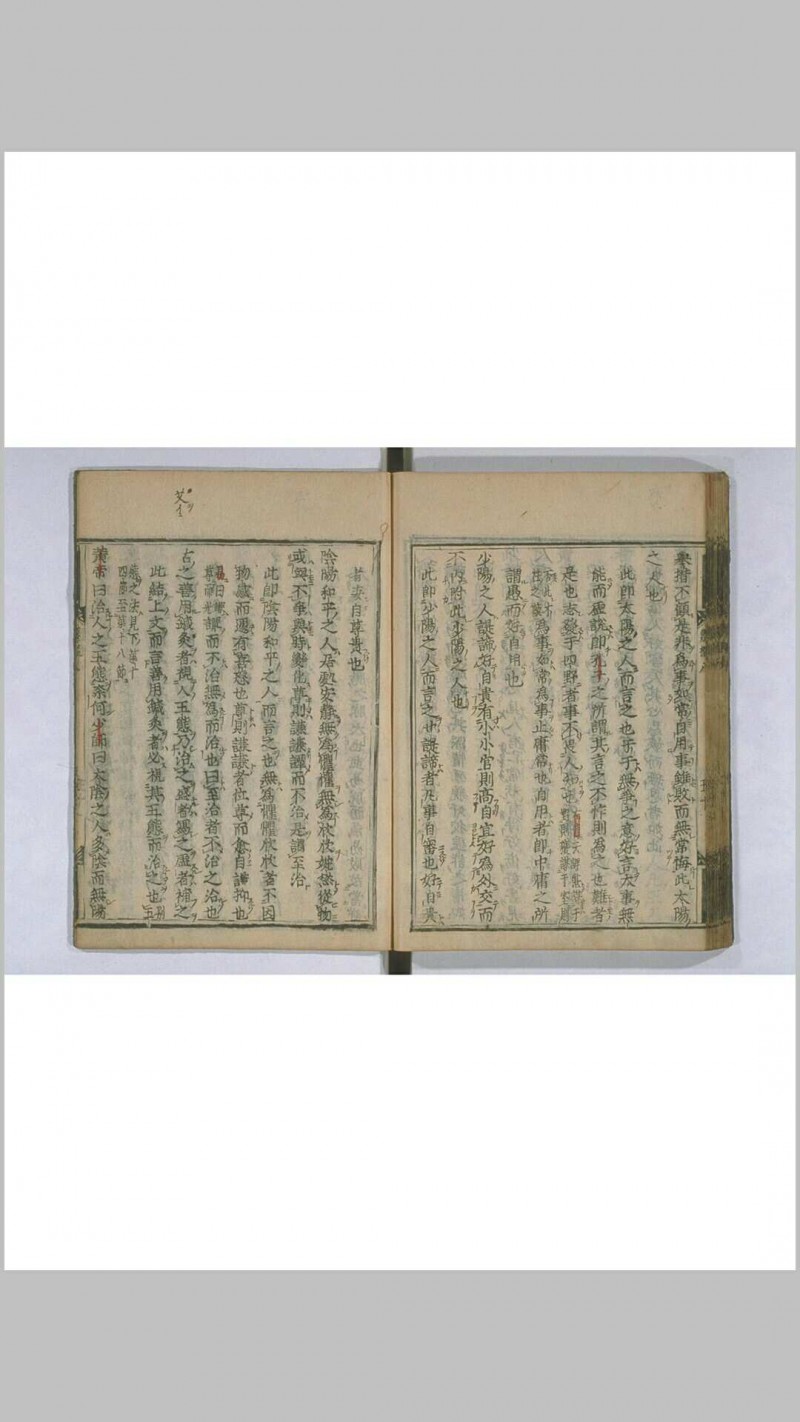 舉措不顧是非為事如常自用事雖敗而無常悔此太陽
之人也
此即太陽之人而言之也于于無為之意好言大事無
能而虛說即孔子之所謂其言之不怍則為之也難者
是也志發于四野者事不畏人知也
為事如常為事止庸常也自用者即中庸之所
謂愚而好自用也
少陽之人諟諦好自貴有小小官則高自宜好為外交而
不內附此少陽之人也
此即少陽之人而言之也諟諦者凡事自審也好自貴
者妄自尊貴也
陰陽和平之人居處安靜無為懼懼無為欣欣婉然從物
或與不爭與時變化尊則謙謙譚而不治是謂至治
此即陰陽和平之人而言之也無為懼懼欣欣者不因
物感而應有喜怒也尊則謙謙者位尊而愈自謙抑也
譚而不治無為而治也曰至治者不治之治也
古之善用鍼灸者視人五態乃治之盛者瀉之虛者補之
此結上文而言善用鍼灸者必視其五態而治之也
態之法見下第十
四節至第十八節
黃帝曰治人之五態奈何少師曰太陰之人多陰而無陽